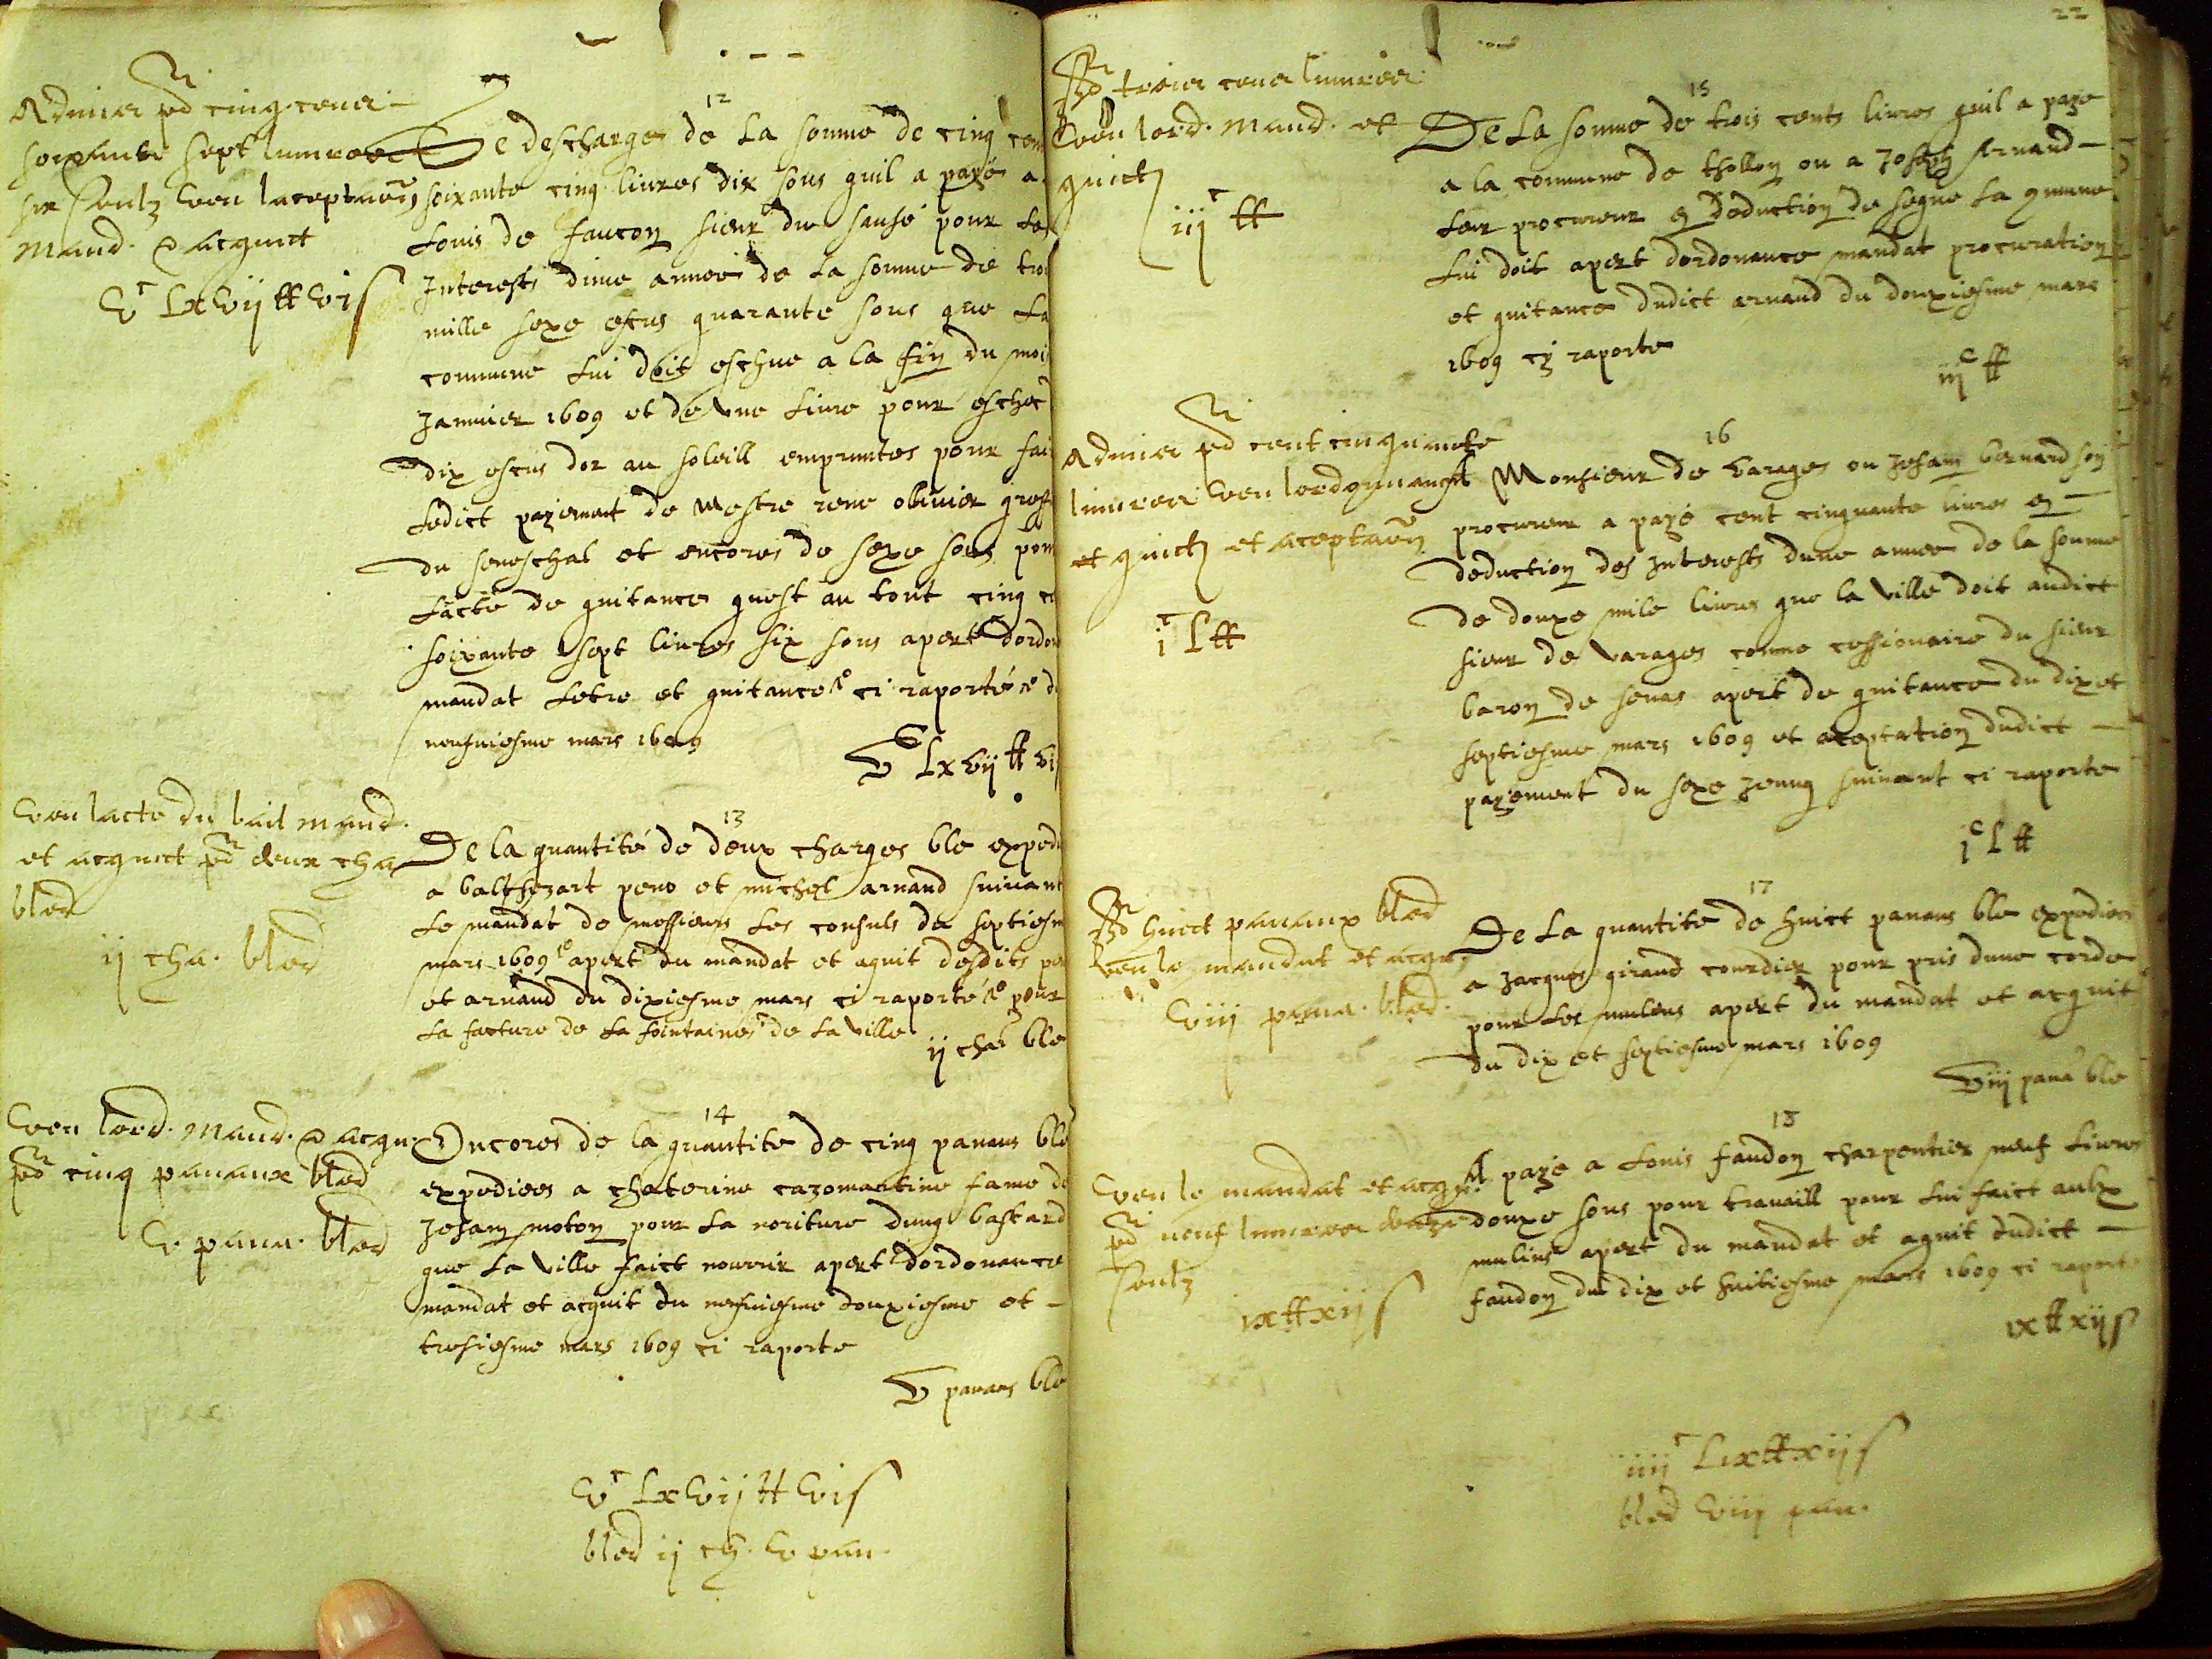 Admis pd cinq cens
soixante sept livres
six soulz veu lacceptaon
mand. & acquict
vc Lxvij tt vi s
12
De descharges de la somme de cinq cen
soixante cinq livres dix sous quil a payé a
Louis de faucon sieur du sausé pour les
Interests dune annee de la somme de trois
mille seze escus quarante sous que la
commune lui doit escheue a la fin du mois
Januier 1609 et de une liure pour
dix escus dor au soleill empruntes pour fai
ledict payement de Mestre rene oliuier
du seneschal et encores de seze sous pour
lacte de quitance quest au tout cinq ce
soixante sept liures six sous apert dordon
mandat letre et quitance ci raporté d
neufuiesme mars 1609
vc Lxvij tt vi
veu lacte du bail mand.
et acquict pd deux cha
bled
ij cha. bled
13
De la quantité de deux charges ble expedi
a balthezart peno et michel arnaud suiuant
le mandat de messieurs les consuls du septiesm
mars 1609 apert du mandat et aquit desdits pe
et arnaud du dixiesme mars ci raporté pour
la facture de la fointaines de la ville
ij char ble
veu lord. mand. & acqu.
pd cinq panaux bled
v pana. bled
14
Encores de la quantite de cinq panaus ble
expediees a chaterine cazemartine fame de
Jehan moton pour la noriture dung bastard
que la ville faict nourrir apert dordonance
mandat et acquit du neufuiesme douxiesme et
tresiesme mars 1609 ci raporte
v panaus ble
vc Lxvij tt vi s
bled ij ch. v pan.
22
pd trois cens livres
veu lord. mand. et
quict
iijc tt
15
De la somme de trois cents liures quil a paye
a la commune de thollon ou a Joseph Arnaud
leur procureur en deduction de se que la commune
lui doit apert dordonance mandat procuration
et quitance dudict arnaud du douxiesme mars
1609 cy raporte
iijc tt
Admis pd cent cinquante
livres veu lordonnance
et quict et acceptaon
jc L tt
16
A Monsieur de barages ou Jehan bernard son
procureur a payé cent cinquante liures en
deduction des interests dune annee de la somme
de douze mile liures que la ville doit audict
sieur de varages comme cessionaire du sieur
baron de senas apert de quitance du dix et
septiesme mars 1609 et aceptation dudict
payement du seze suiuant ci raporte
jc L tt
pd huict panaux bled
veu le mandat et acqu.
viij pana. bled.
17
De la quantite de huict panaus ble expediees
a Jacques giraud courdier pour pris dune corde
pour les mulens apert du mandat et acquit
du dix et septiesme mars 1609
viij pana ble
veu le mandat et acqu.
pd neuf livres douze
soulz
ix tt xij s
18
A paye a Louis faudon charpentier neuf liures
douxe sous pour trauaill pour lui faict aulx
mulins apert du mandat et aquit dudict
faudon du dix et huitiesme mars 1609 ci raporte
ix tt xij s
iiijc Lix tt xij s
bled viij pan.